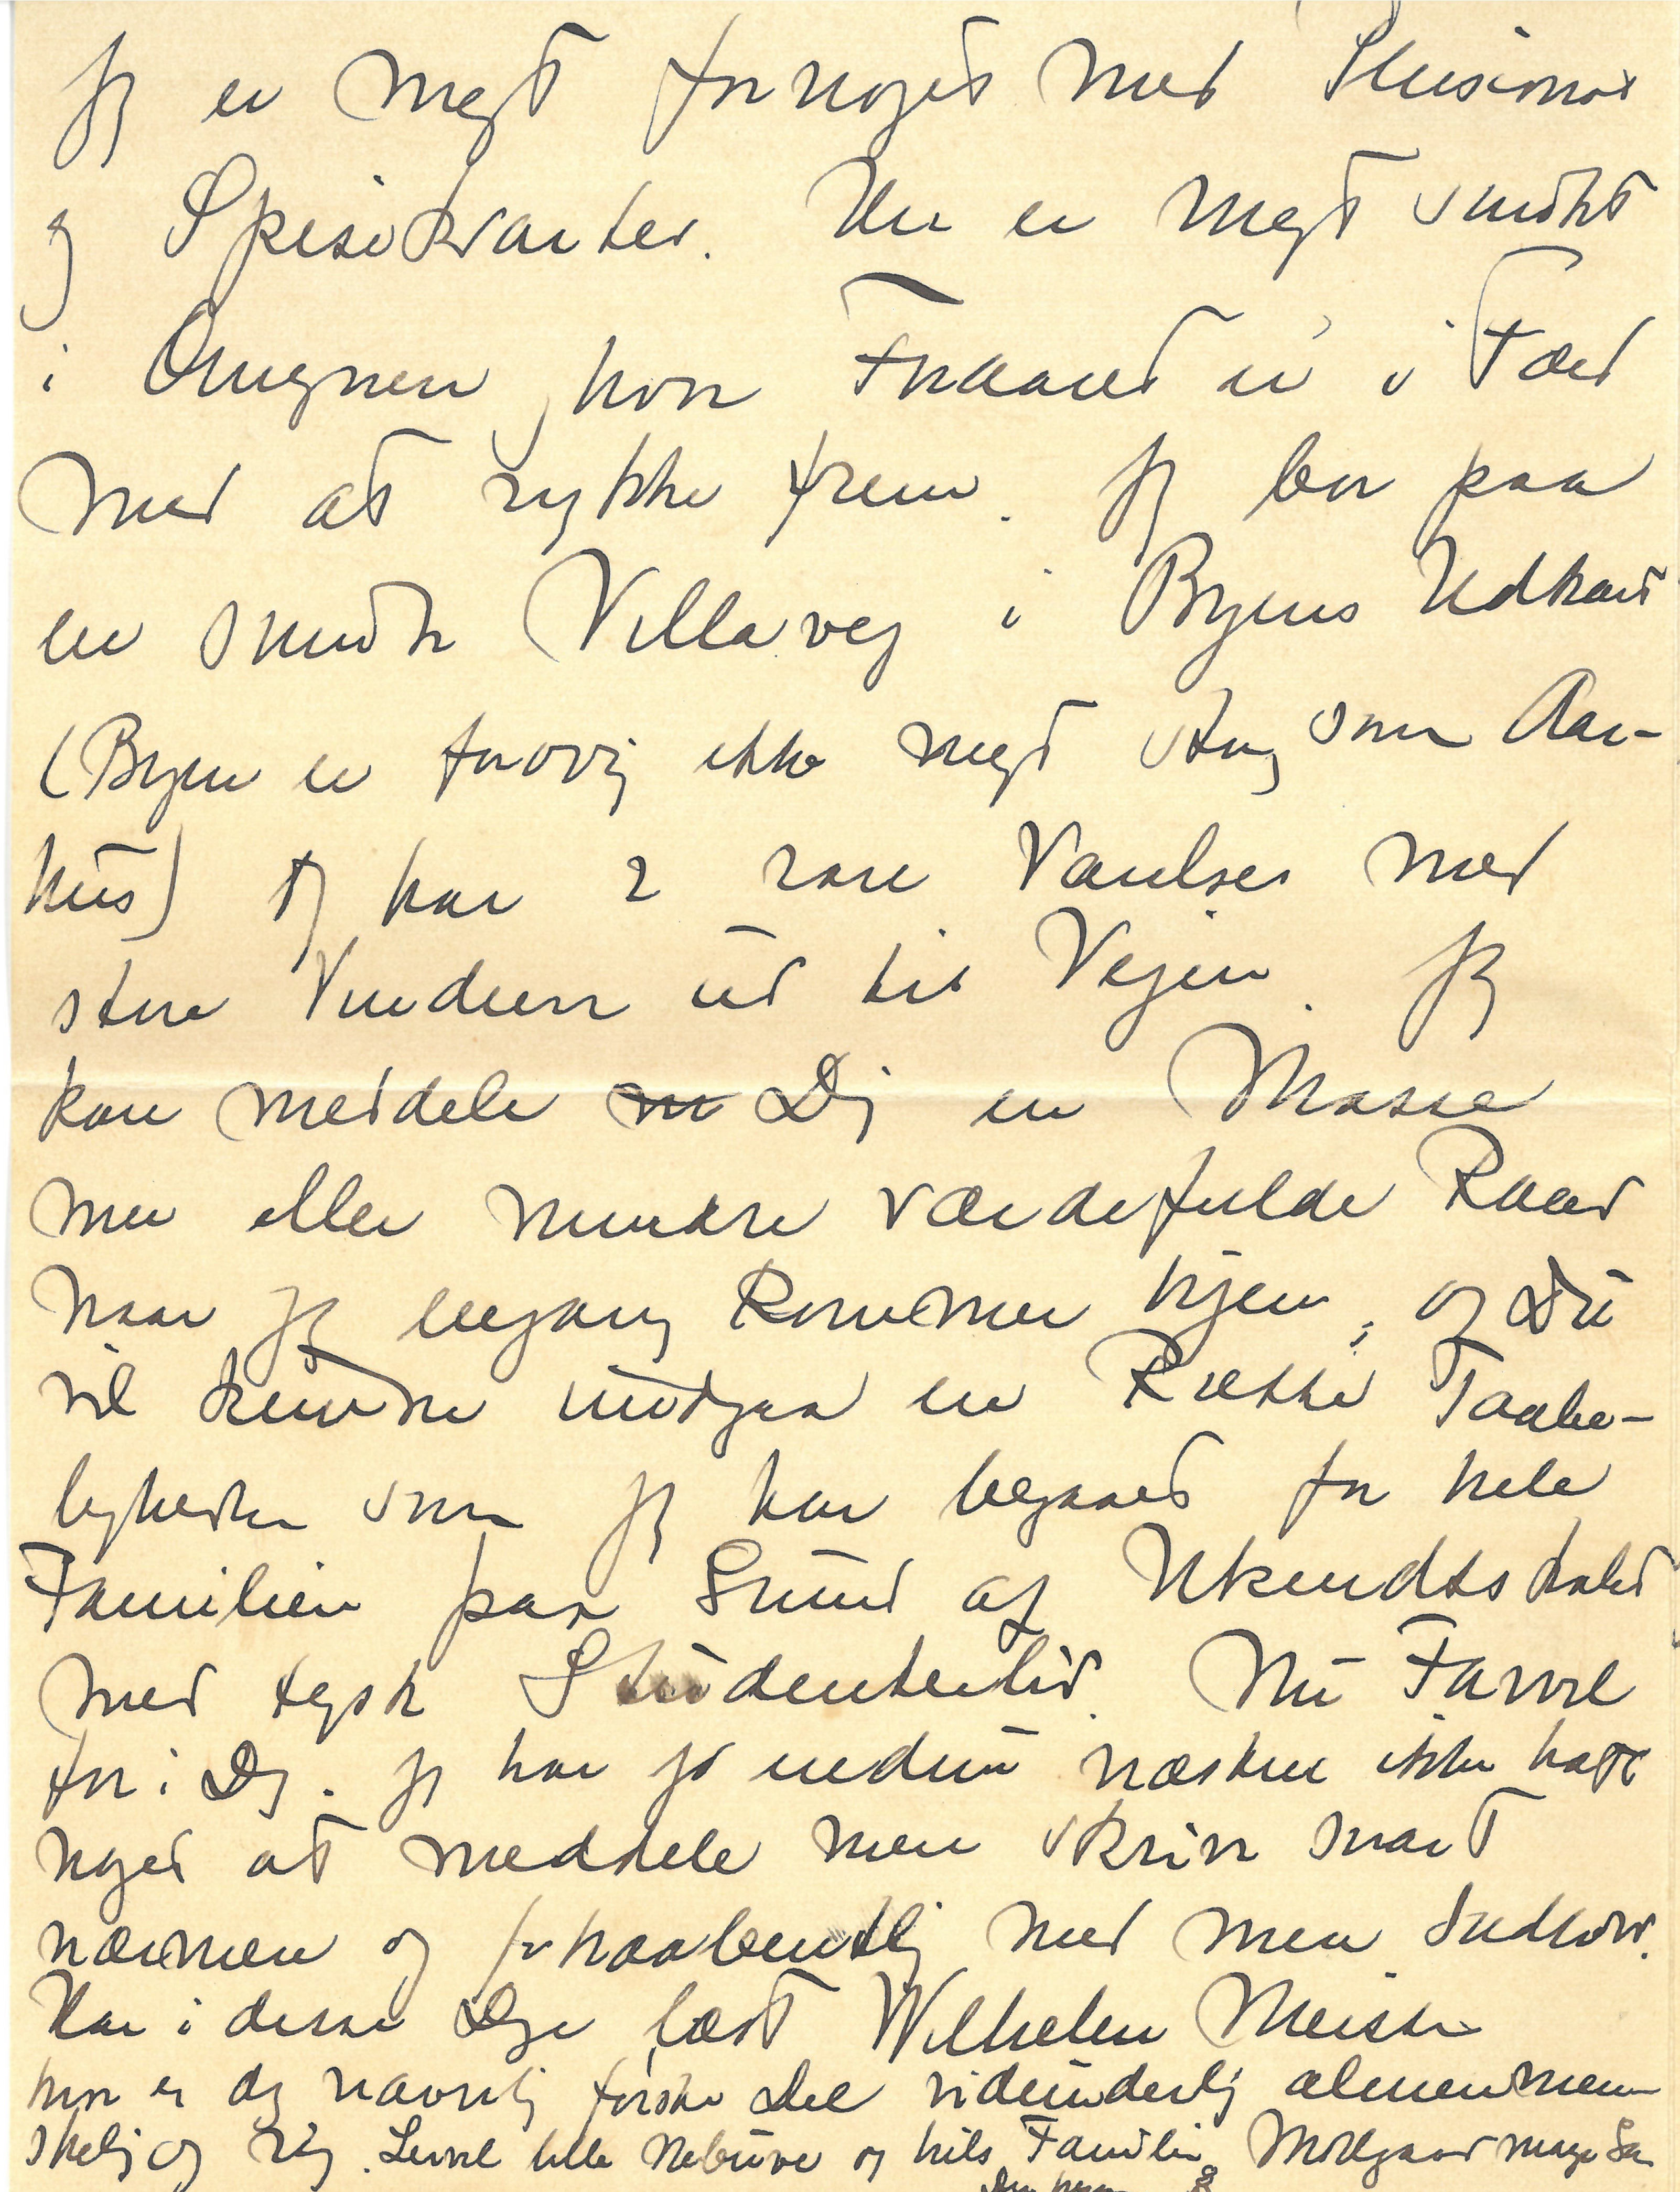 Jeg er meget fornøjet med Pensionat
og Spisekvarter. Her er meget smukt
i Omegnen, hvor Foraaret er i Færd
med at rykke frem. Jeg bor paa
en smuk Villavej i Byens Udkant
(Byen er forøvrig ikke meget stor som Aar-
hus) Jeg har 2 rare Værelser med
store Vinduer ud til Vejen. Jeg
kan meddele Dig en Masse
mer eller mindre værdifulde Raad
naar jeg engang kommer hjem, og Du
vil kunne undgaa en Række Taabe-
ligheder som jeg har begaaet for hele
Familien paa Grund af Ukendtskabet
med tysk Studenterliv. Nu Farvel
for i Dag. Jeg har jo endnu næsten ikke haft
noget at meddele men skriver snart
nærmere og forhaabentlig med mere Indhold.
Har i disse Dage læst Wilhelm Meister
hvor er dog navnlig første Del vidunderlig almenmen-
skelig og rig. Levvel lille og hils Familien Mølgaard mange